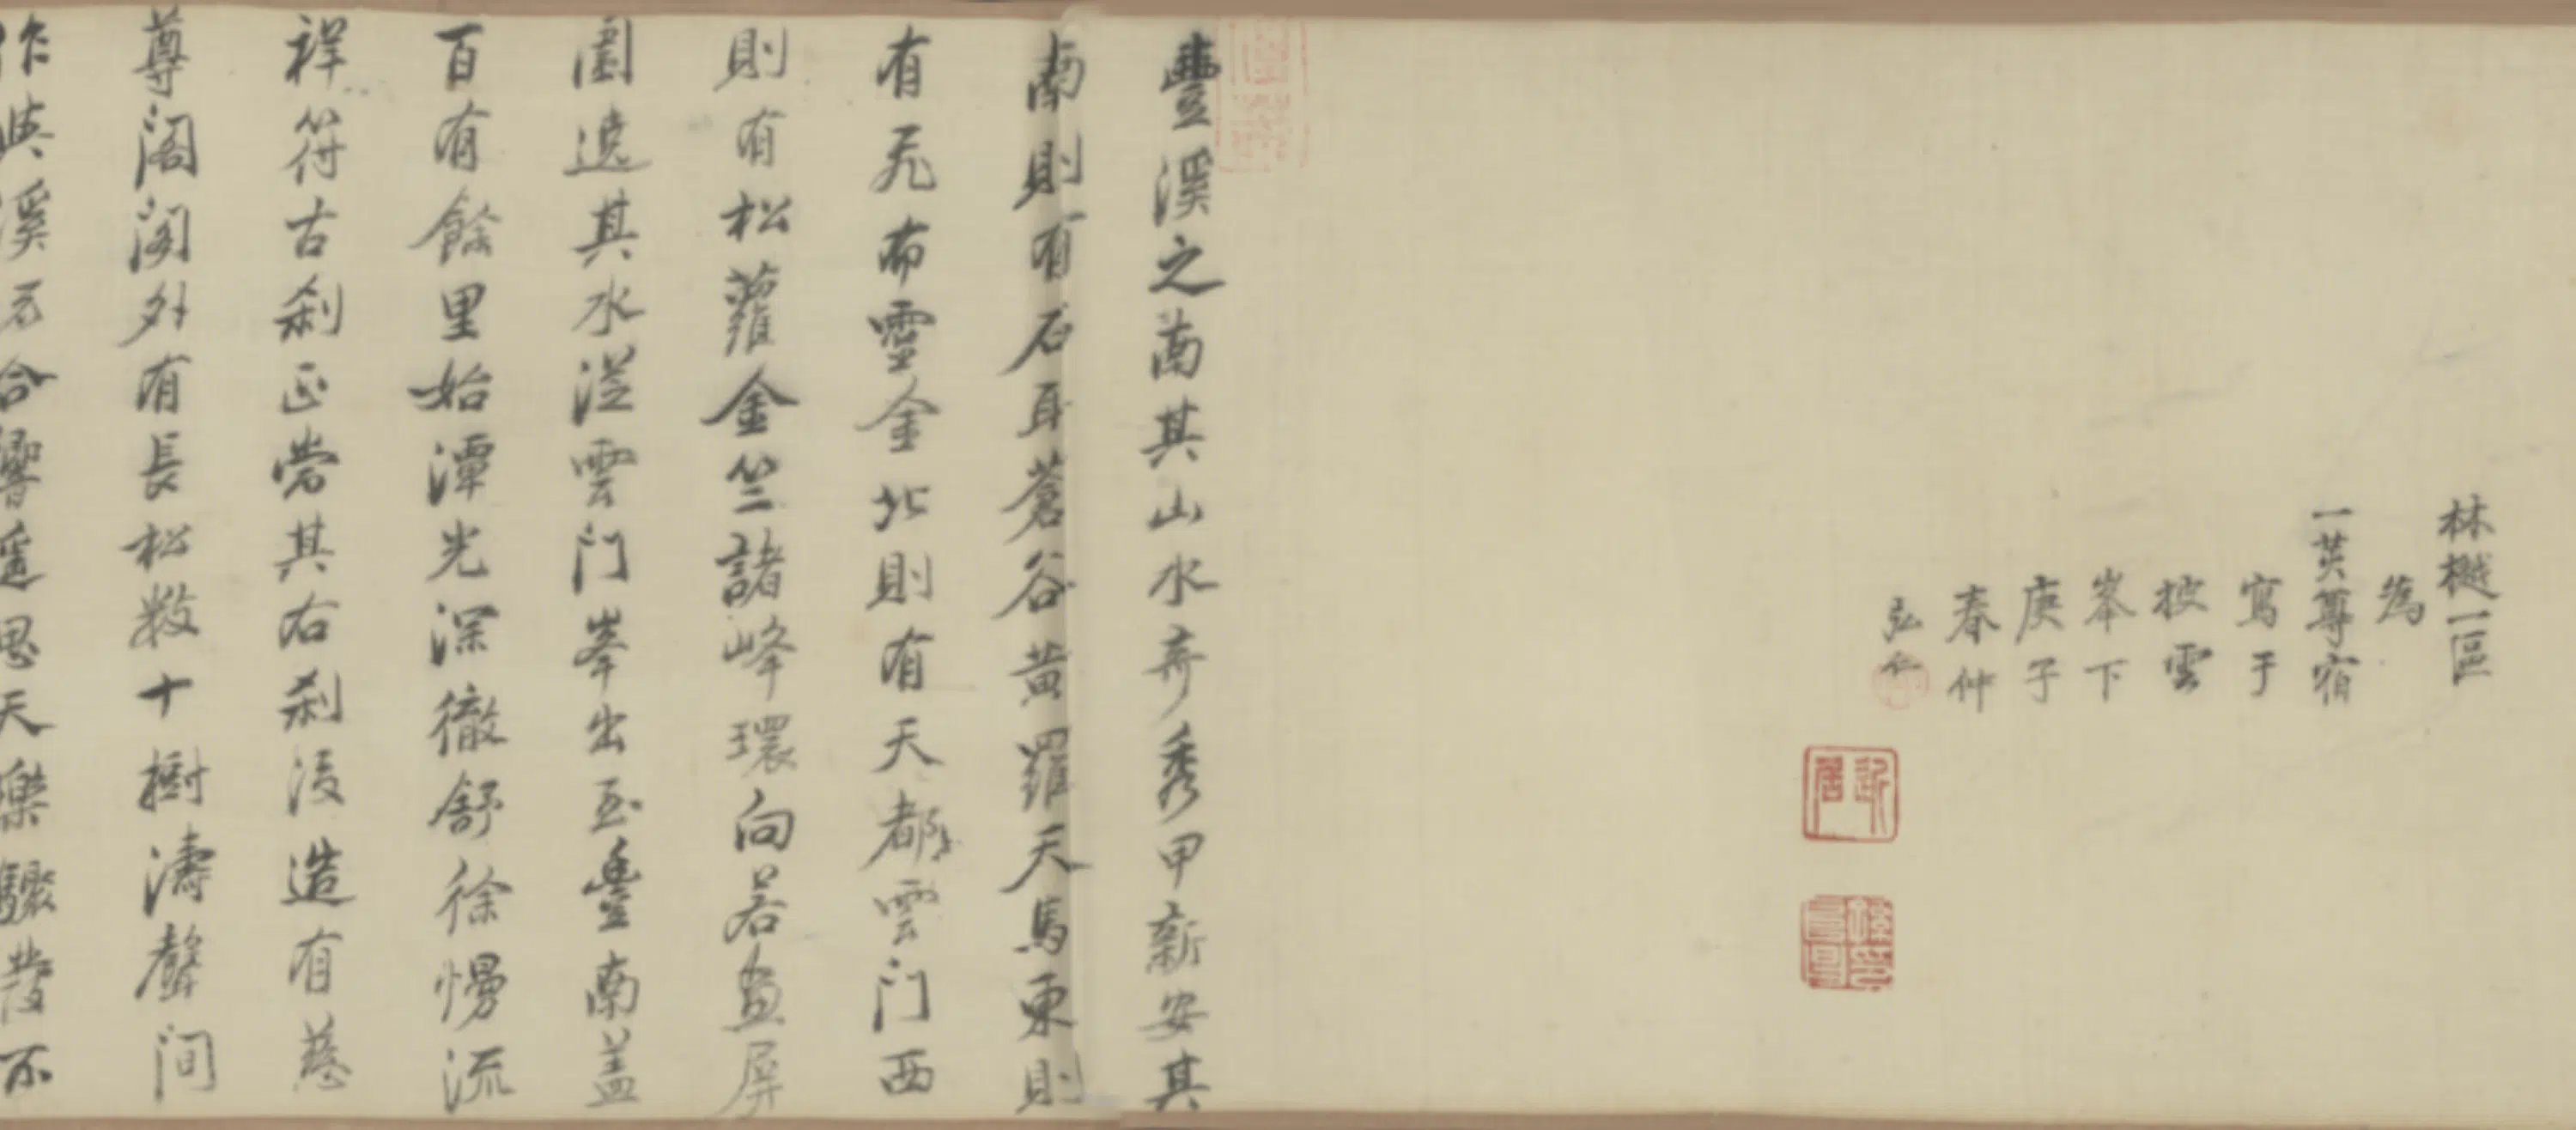 林樾一區
為
一英尊宿
寫于
披雲
峯下
庚子
春仲
弘仁
豐溪之南其山水奇秀甲新安其
南則有石耳蒼谷黃羅天馬東則
有布靈金北則有天都雲門西
則有松蘿金竺諸峰環向若畫屏
圍遶其水從雲門峯出至豐南蓋
百有餘里始潭光深徹舒徐慢流
祥符古刹正當其右刹後造有慈
尊閣閣外有長松數十樹濤聲間
作與溪石合響遙思天樂驟發不